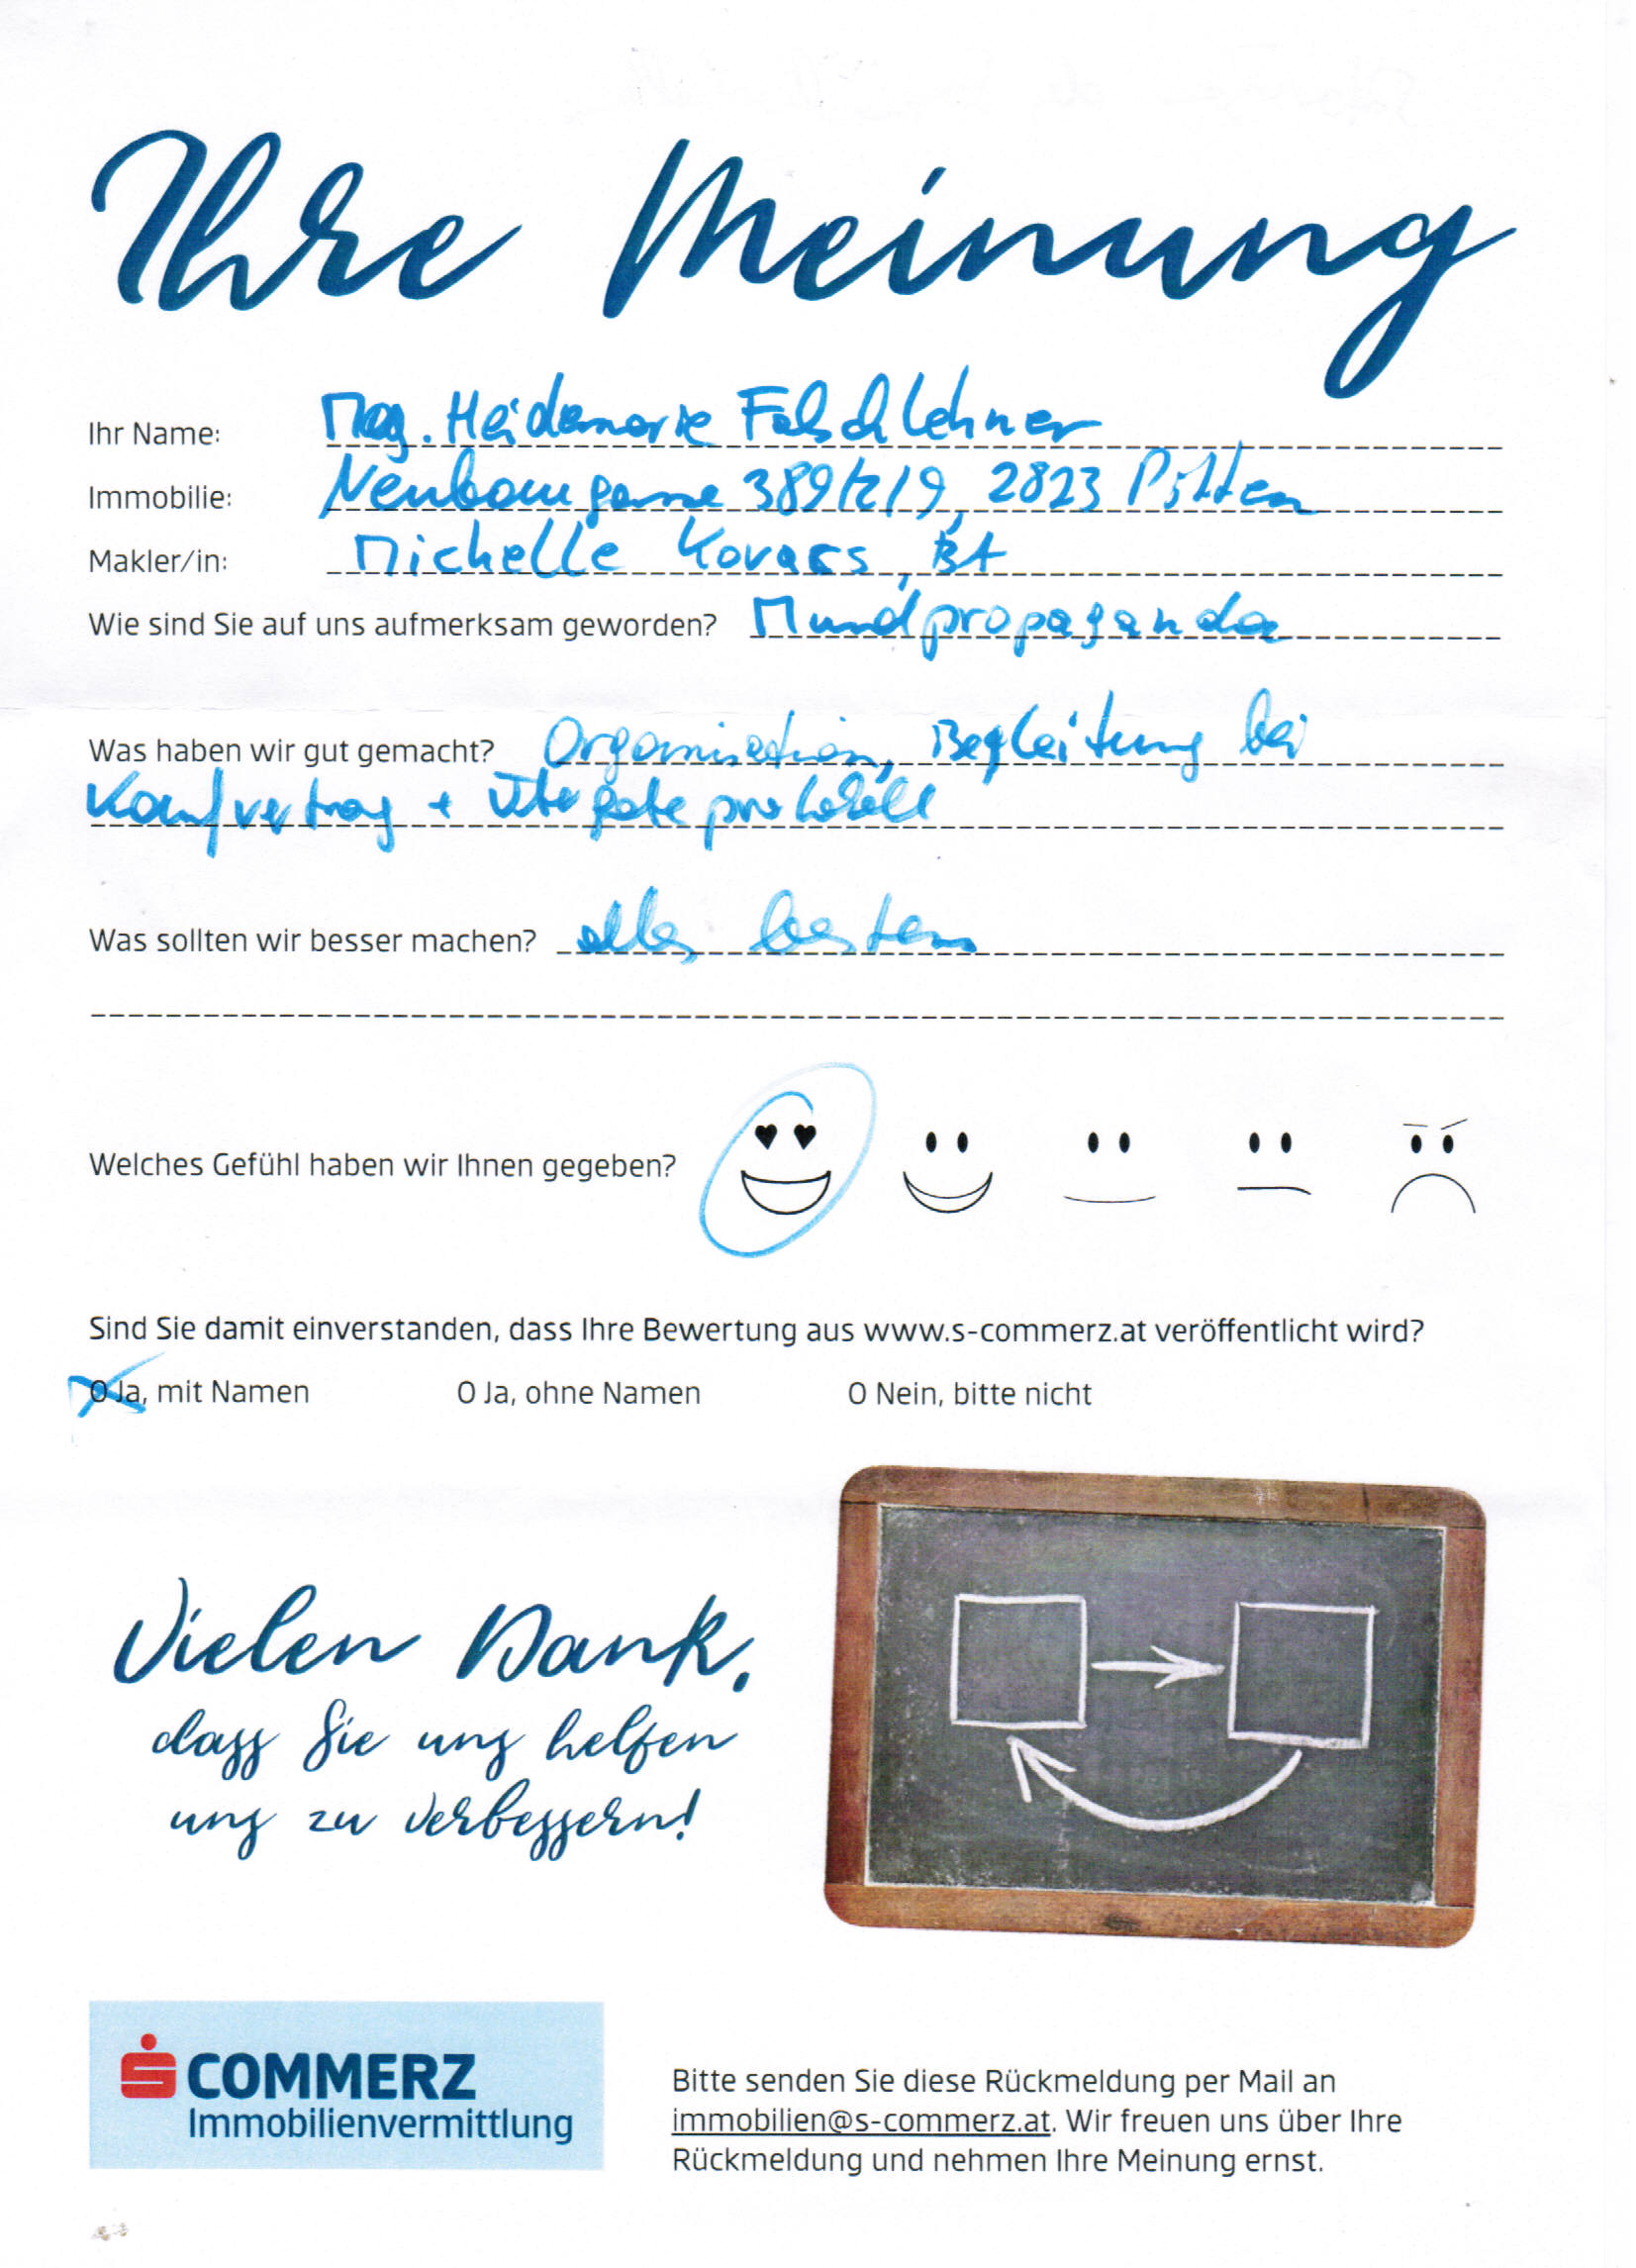 Ihre Meinung
Ihr Name: Mag. Heidemarie Falschlehner
Immobilie: Neubaugasse 389/2/9, 2823 Pitten
Makler/in: Michelle Kovacs, BA
Wie sind Sie auf uns aufmerksam geworden? Mundpropaganda
Was haben wir gut gemacht? Organisation, Begleitung bei
Kaufvertrag + Übergabeprotokoll
Was sollten wir besser machen? alles bestens
Welches Gefühl haben wir Ihnen gegeben?
Sind Sie damit einverstanden, dass Ihre Bewertung aus www.s-commerz.at veröffentlicht wird?
O Ja, mit Namen O Ja, ohne Namen O Nein, bitte nicht
Vielen Dank,
dass Sie uns helfen
uns zu verbessern!
S COMMERZ
Immobilienvermittlung
Bitte senden Sie diese Rückmeldung per Mail an
immobilien@s-commerz.at. Wir freuen uns über Ihre
Rückmeldung und nehmen Ihre Meinung ernst.